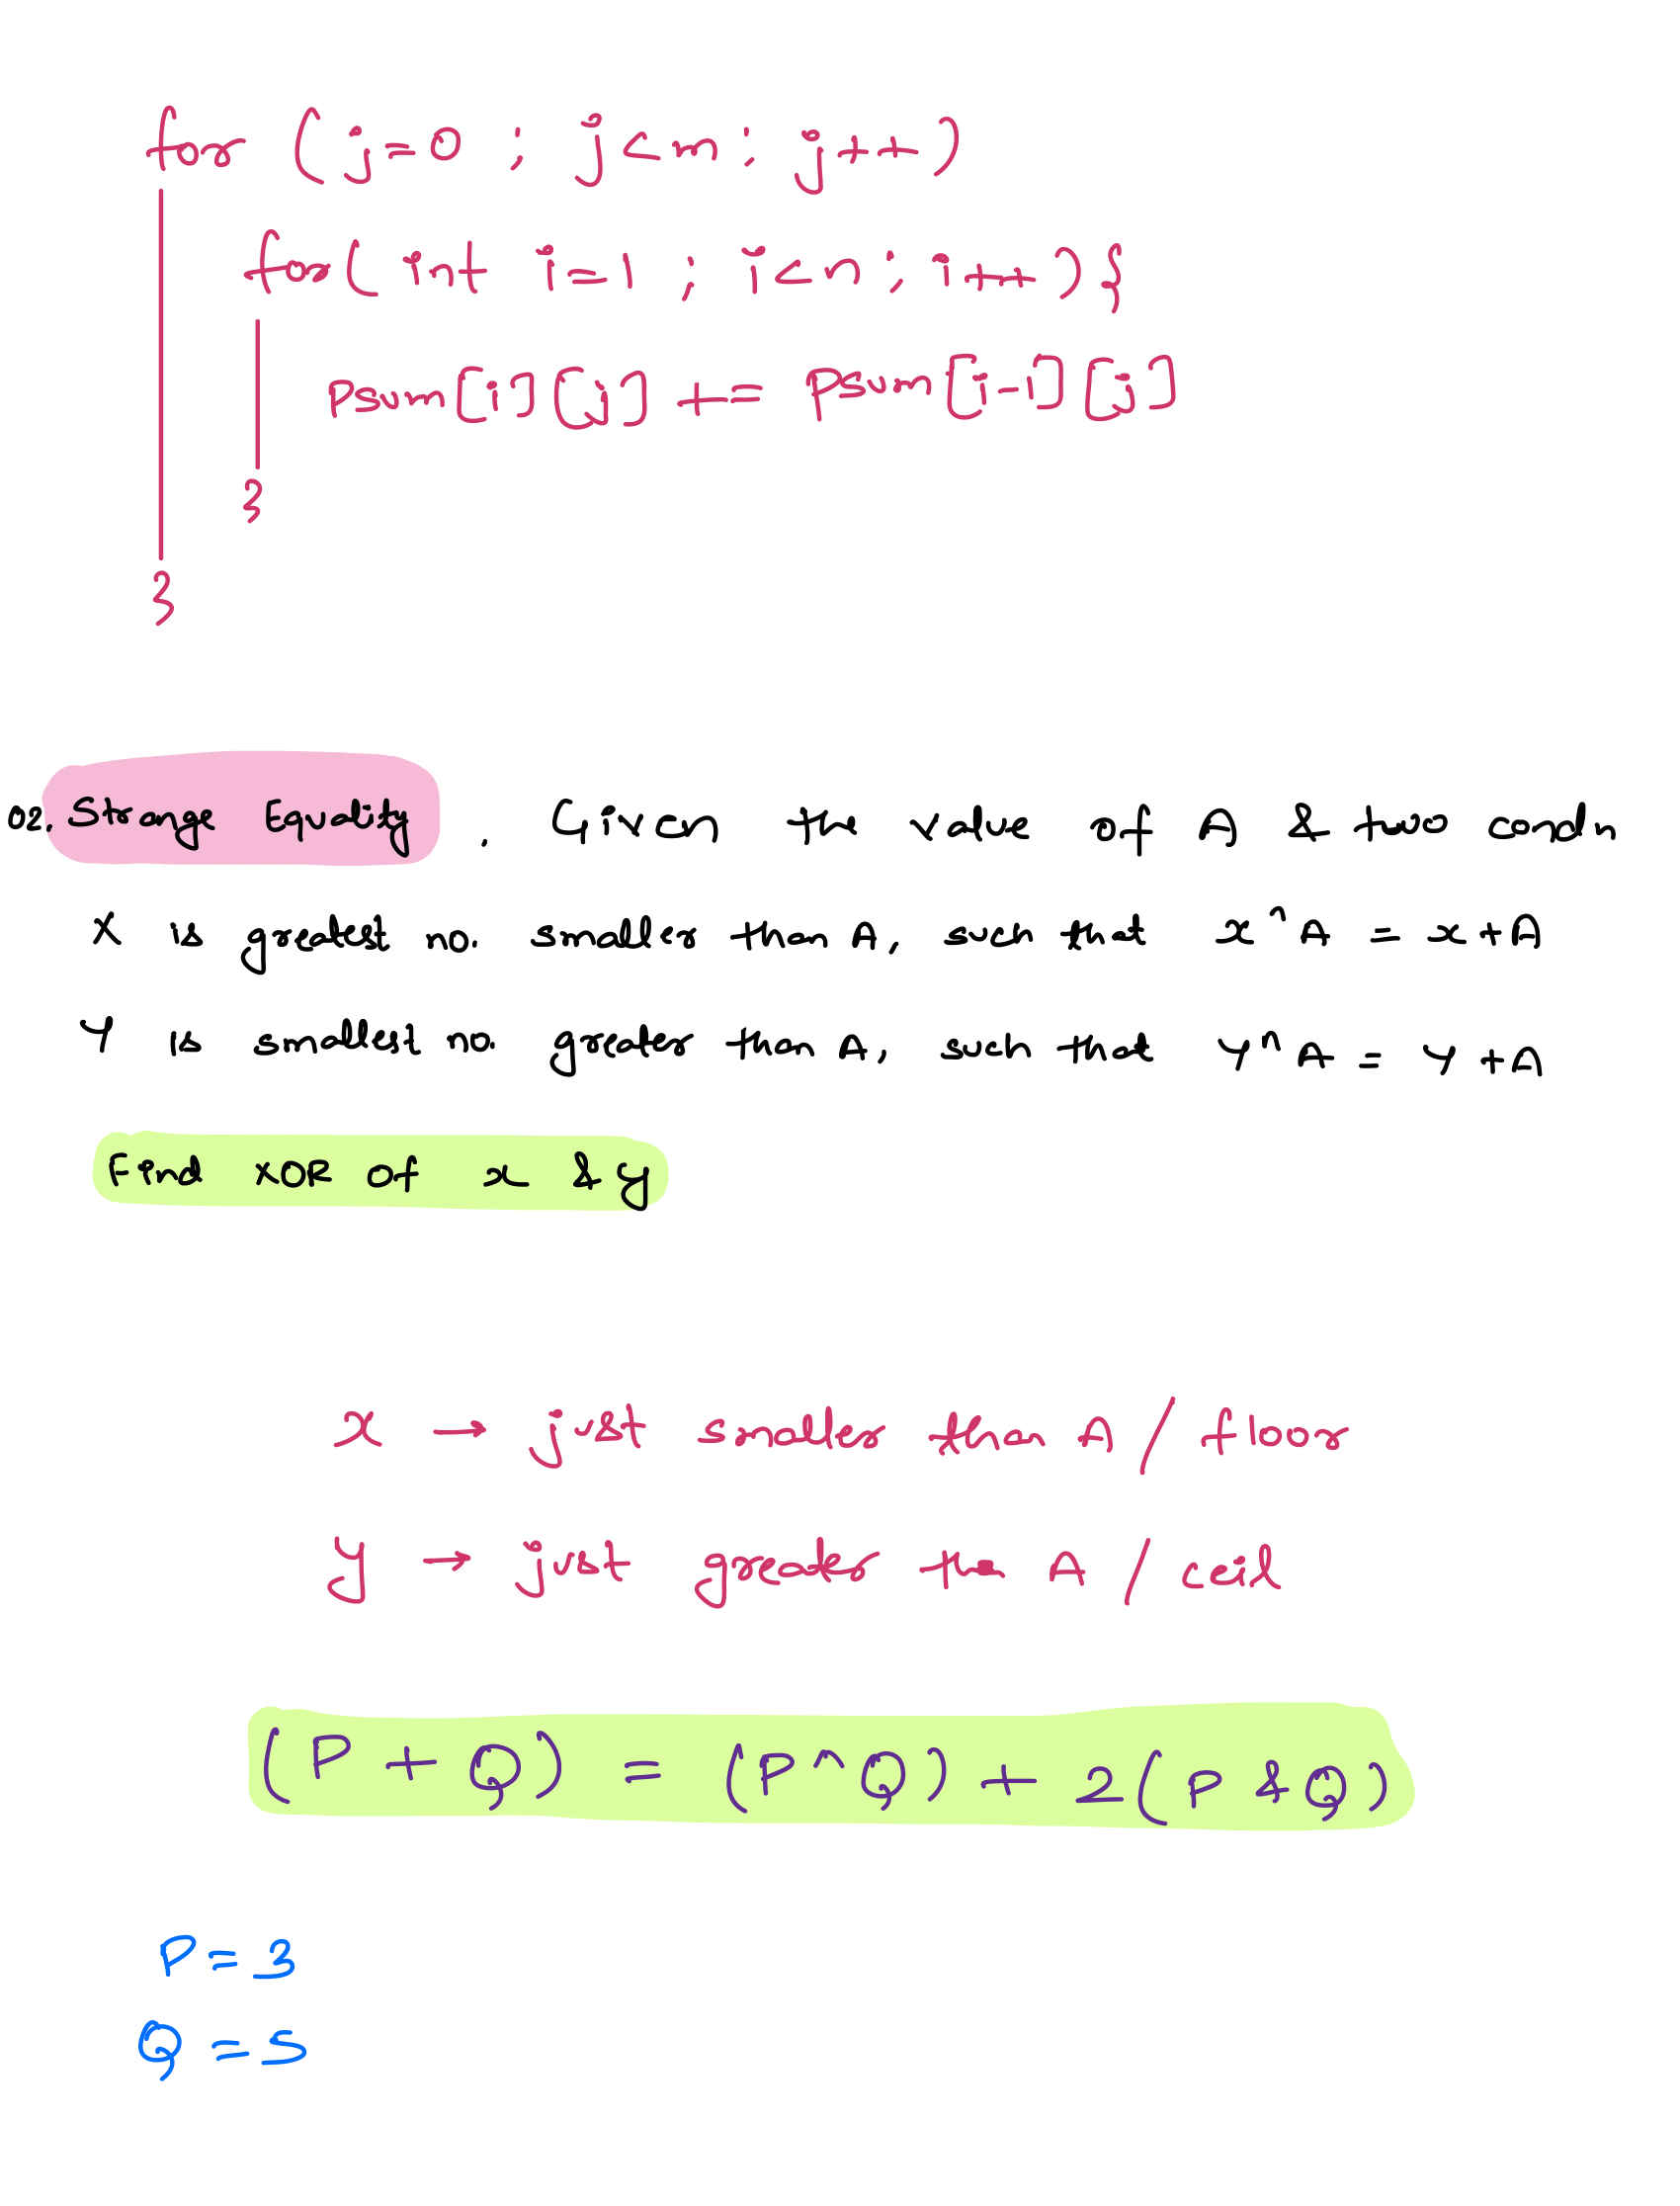 for (j=0 ; j<m; j++)
for( int i=1 ; i<n; i++){
psum[i][j] += psum[i-1][j]
}
}
02. Strange Equality . Given the value of A & two condn
X is greatest no. smaller than A, such that x^A = x+A
Y is smallest no. greater than A, such that Y^A = Y+A
Find XOR of x & y
x → just smaller than A / floor
y → just greater than A / ceil
(P + Q) = (P^Q) + 2(P & Q)
P = 3
Q = 5